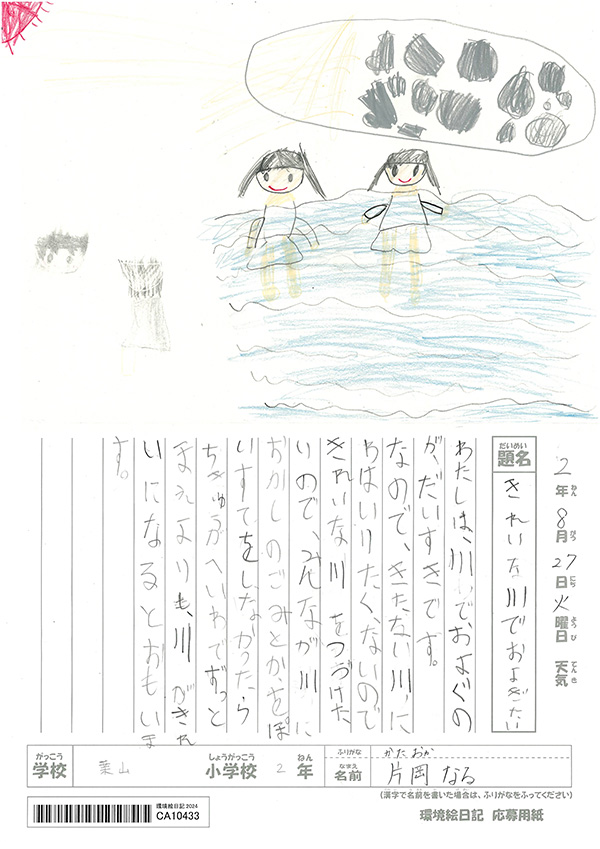 2年 8月 27日 火曜日 天気
ねん がつ にち ようび てんき
だいめい
題名 きれいな川でおよぎたい
わたしは、川で、およぐの
が、だいすきです。
なので、きたない川に
わはいりたく、ないので
きれいな川をつづけた
いので、みんなが川に
おかしのごみとか、をぽ
いすてをしなかったら
ちきゅうがへいわでずっと
まえよりも、川がきれ
いになるとおもいま
す。
がっこう しょうがっこう ねん ふりがな かたおか
学校 葉山 小学校 2 年 なまえ 名前 片岡 なる
(漢字で名前を書いた場合は、ふりがなをふってください)
環境絵日記2024
CA10433
環境絵日記 応募用紙